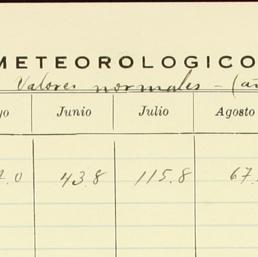 METEOROLOGICO
Valores normales - (añ
yo Junio Julio Agosto
.0 43.8 115.8 67.